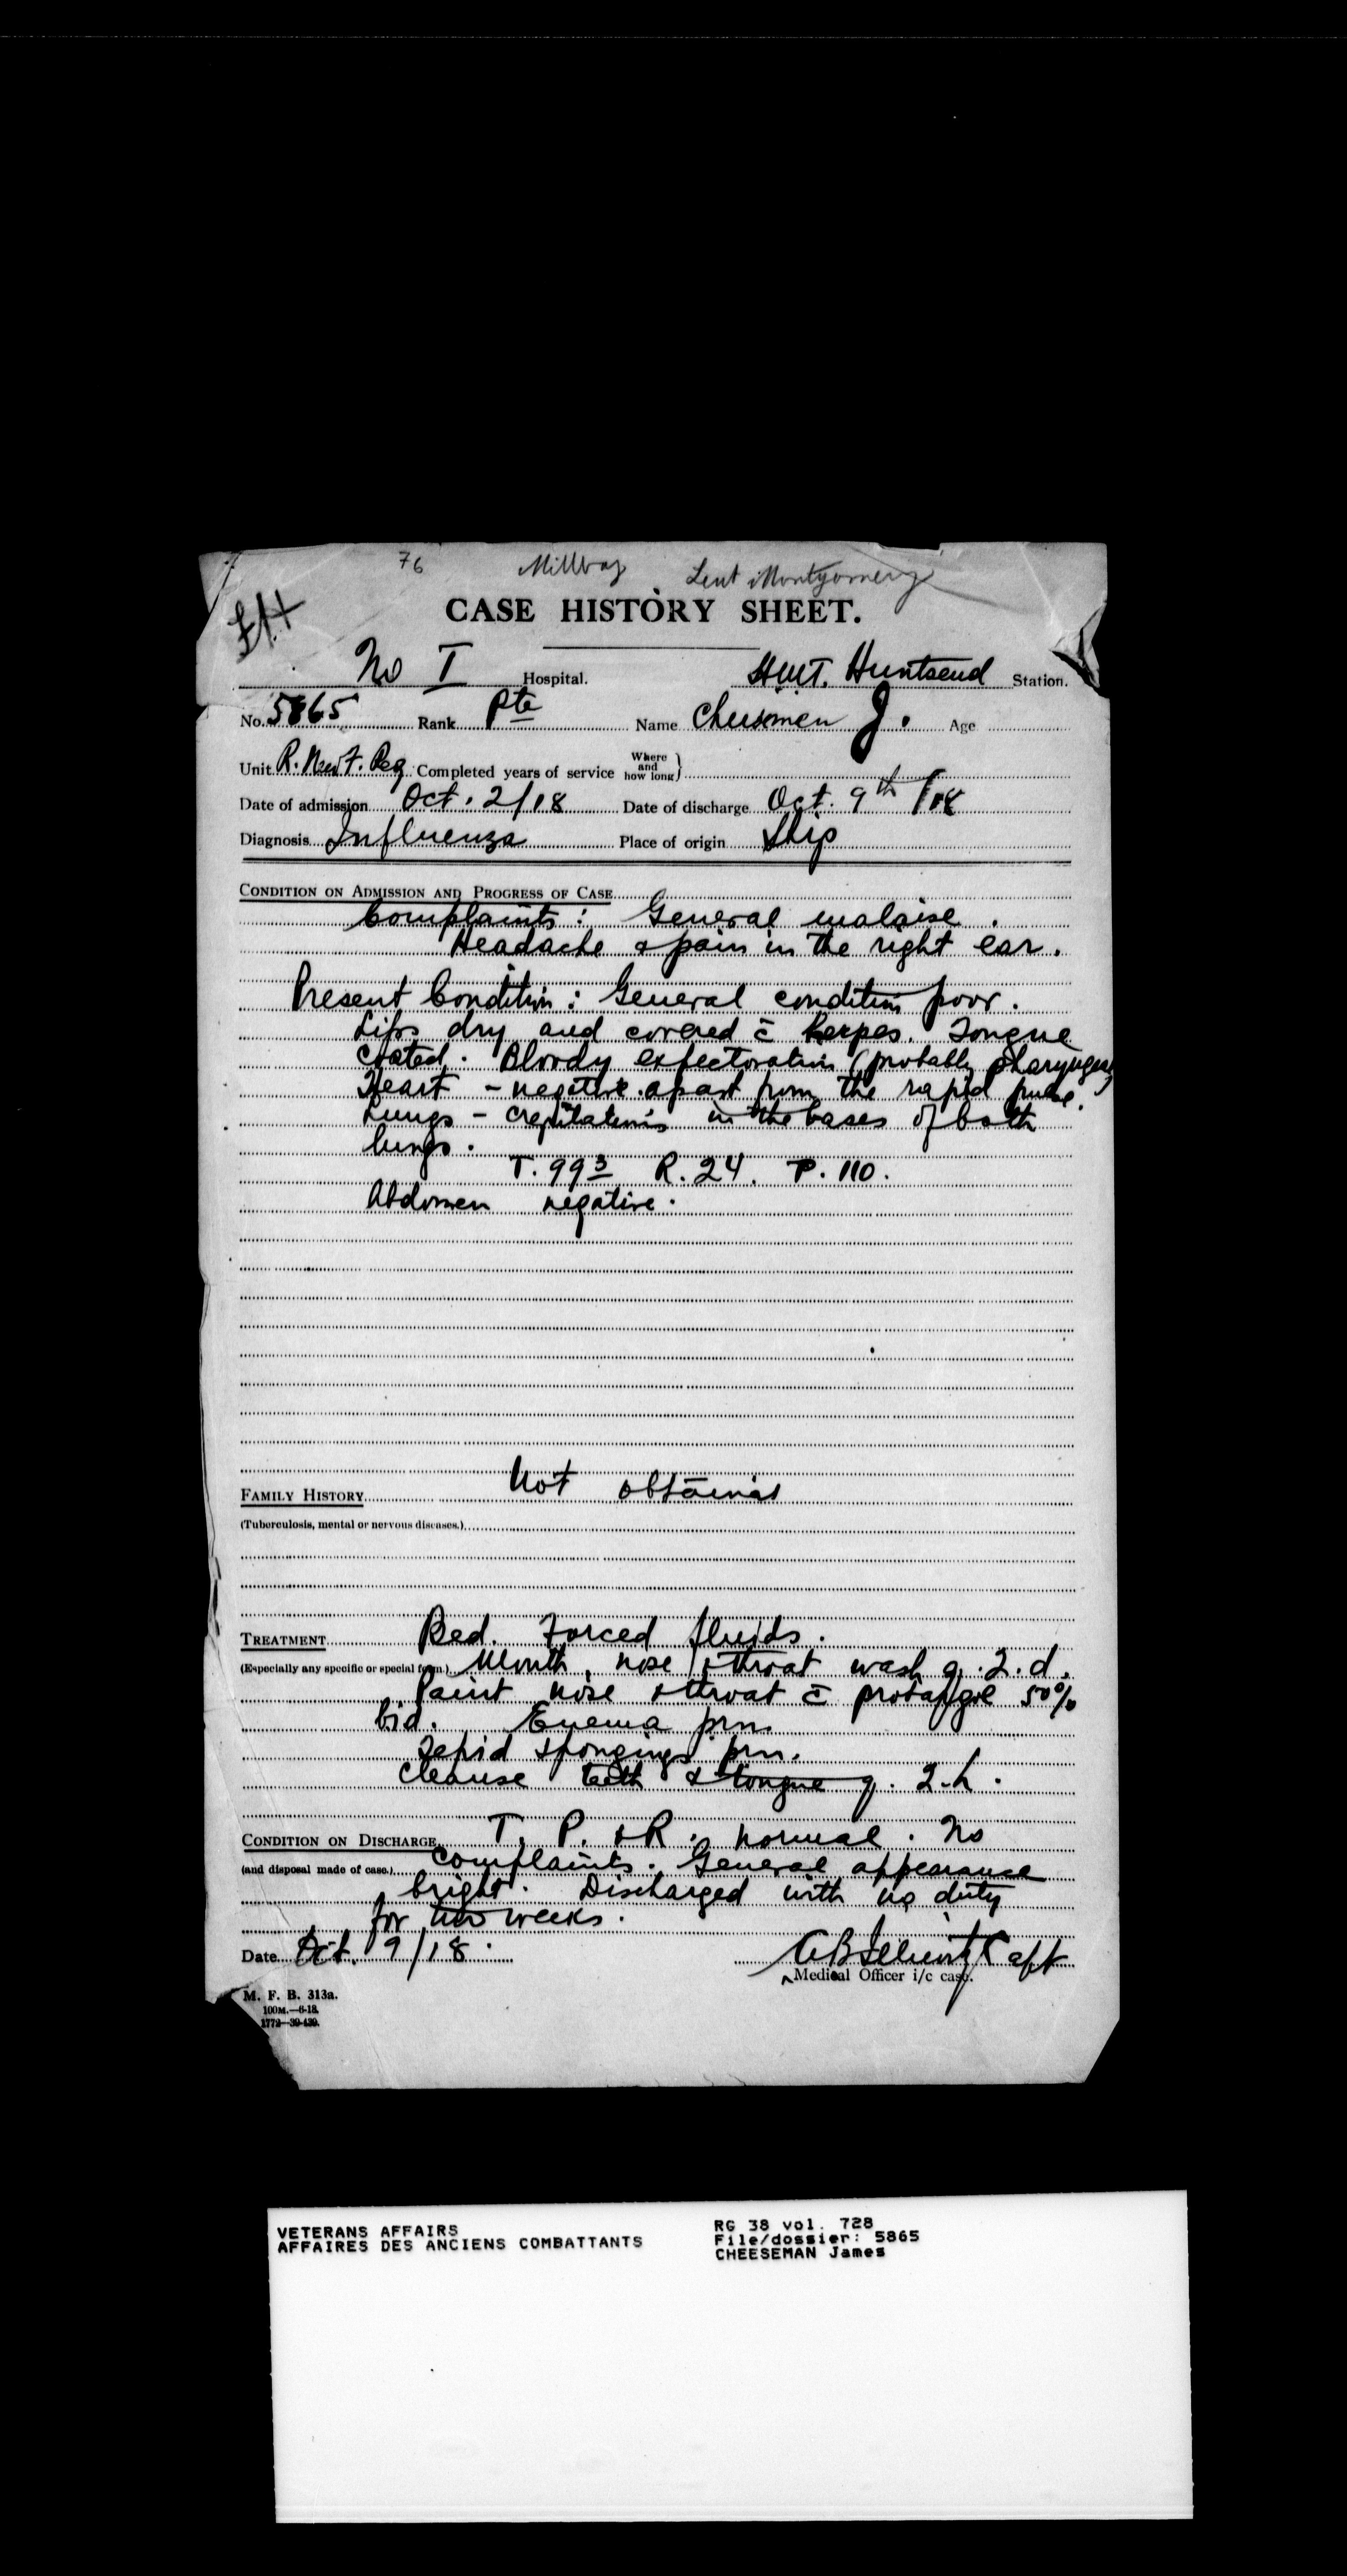 76 Millbay Lieut Montgomery
CASE HISTORY SHEET.
No I Hospital. H.M.T. Huntsend Station.
No. 5865 Rank Pte Name Cheeseman J. Age
Unit R. Newf. Reg Completed years of service Where and how long }
Date of admission Oct. 2/18 Date of discharge Oct. 9th /18
Diagnosis Influenza Place of origin Ship
CONDITION ON ADMISSION AND PROGRESS OF CASE
Complaints: General malaise.
Headache & pain in the right ear.
Present Condition: General condition poor.
Lips dry and covered c̄ herpes. Tongue
coated. Bloody expectoration (probably pharyngeal)
Heart - negative apart from the rapid pulse.
Lungs - crepitations in the bases of both
lungs.
T. 99³ R. 24. P. 110.
Abdomen negative.
FAMILY HISTORY Not obtained
(Tuberculosis, mental or nervous diseases.)
TREATMENT Bed. Forced fluids.
(Especially any specific or special form.) Mouth, nose & throat wash q. 2. d.
Paint nose & throat c̄ protargol 50%
bid. Enema prn.
Tepid spongings prn.
Cleanse teeth & tongue q. 2. h.
CONDITION ON DISCHARGE T, P. & R. normal. No
(and disposal made of case.) complaints. General appearance
bright. Discharged with no duty
for two weeks.
Date Oct. 9/18. Capt
Medical Officer i/c case.
M. F. B. 313a.
100M.—6-18.
1772—39-439.
VETERANS AFFAIRS
AFFAIRES DES ANCIENS COMBATTANTS
RG 38 vol. 728
File/dossier: 5865
CHEESEMAN James